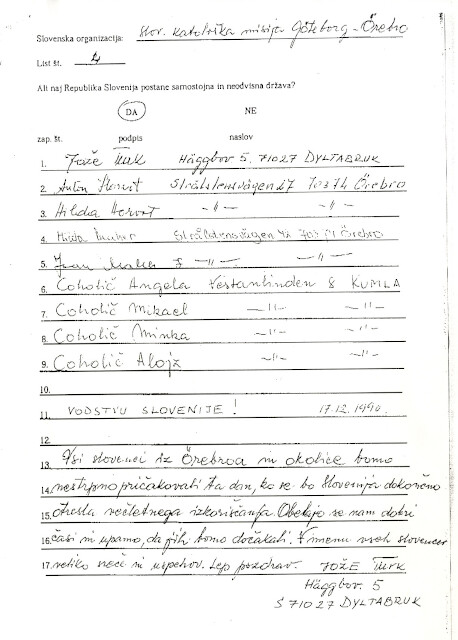 Slovenska organizacija: Slov. katoliška misija Göteborg - Örebro
List št. 2
Ali naj Republika Slovenija postane samostojna in neodvisna država?
DA NE
zap. št. podpis naslov
1. Jože Turk Häggbov 5, 71027 DYLTABRUK
2. Anton Horvat 70374 Örebro
3. Hilda Horvat -"- -"-
4. Örebro
5. Ivan -"- -"-
6. Coholič Angela Västanlinden 8 KUMLA
7. Coholič Mikael -"- -"-
8. Coholič Minka -"- -"-
9. Coholič Alojz -"- -"-
10.
11. VODSTVU SLOVENIJE! 17.12.1990.
12.
13. Vsi slovenci iz Örebroa in okolice bomo
14. nestrpno pričakovali ta dan, ko se bo Slovenija dokončno
15. otresla večletnega izkoriščanja. Obetajo se nam dobri
16. časi in upamo, da jih bomo dočakali. V imenu vseh slovencev
17. veliko sreče in uspehov. Lep pozdrav. JOŽE TURK
Häggbov. 5
S 71027 DYLTABRUK